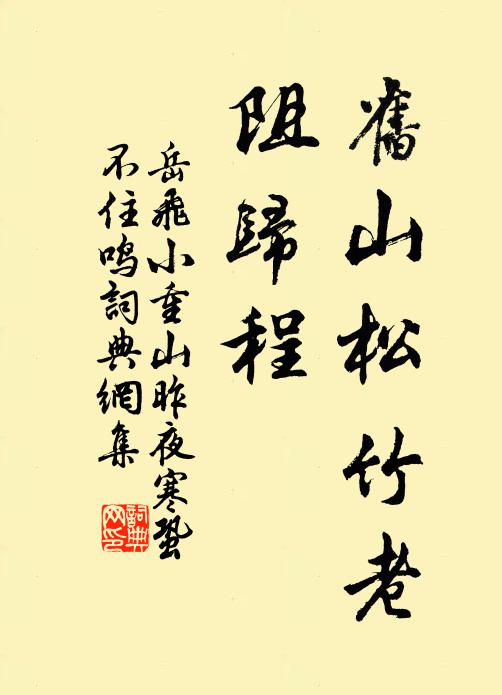 舊山松竹老
阻歸程
岳飛小重山昨夜寒蛩
不住鳴詞典網集
詞典
网印